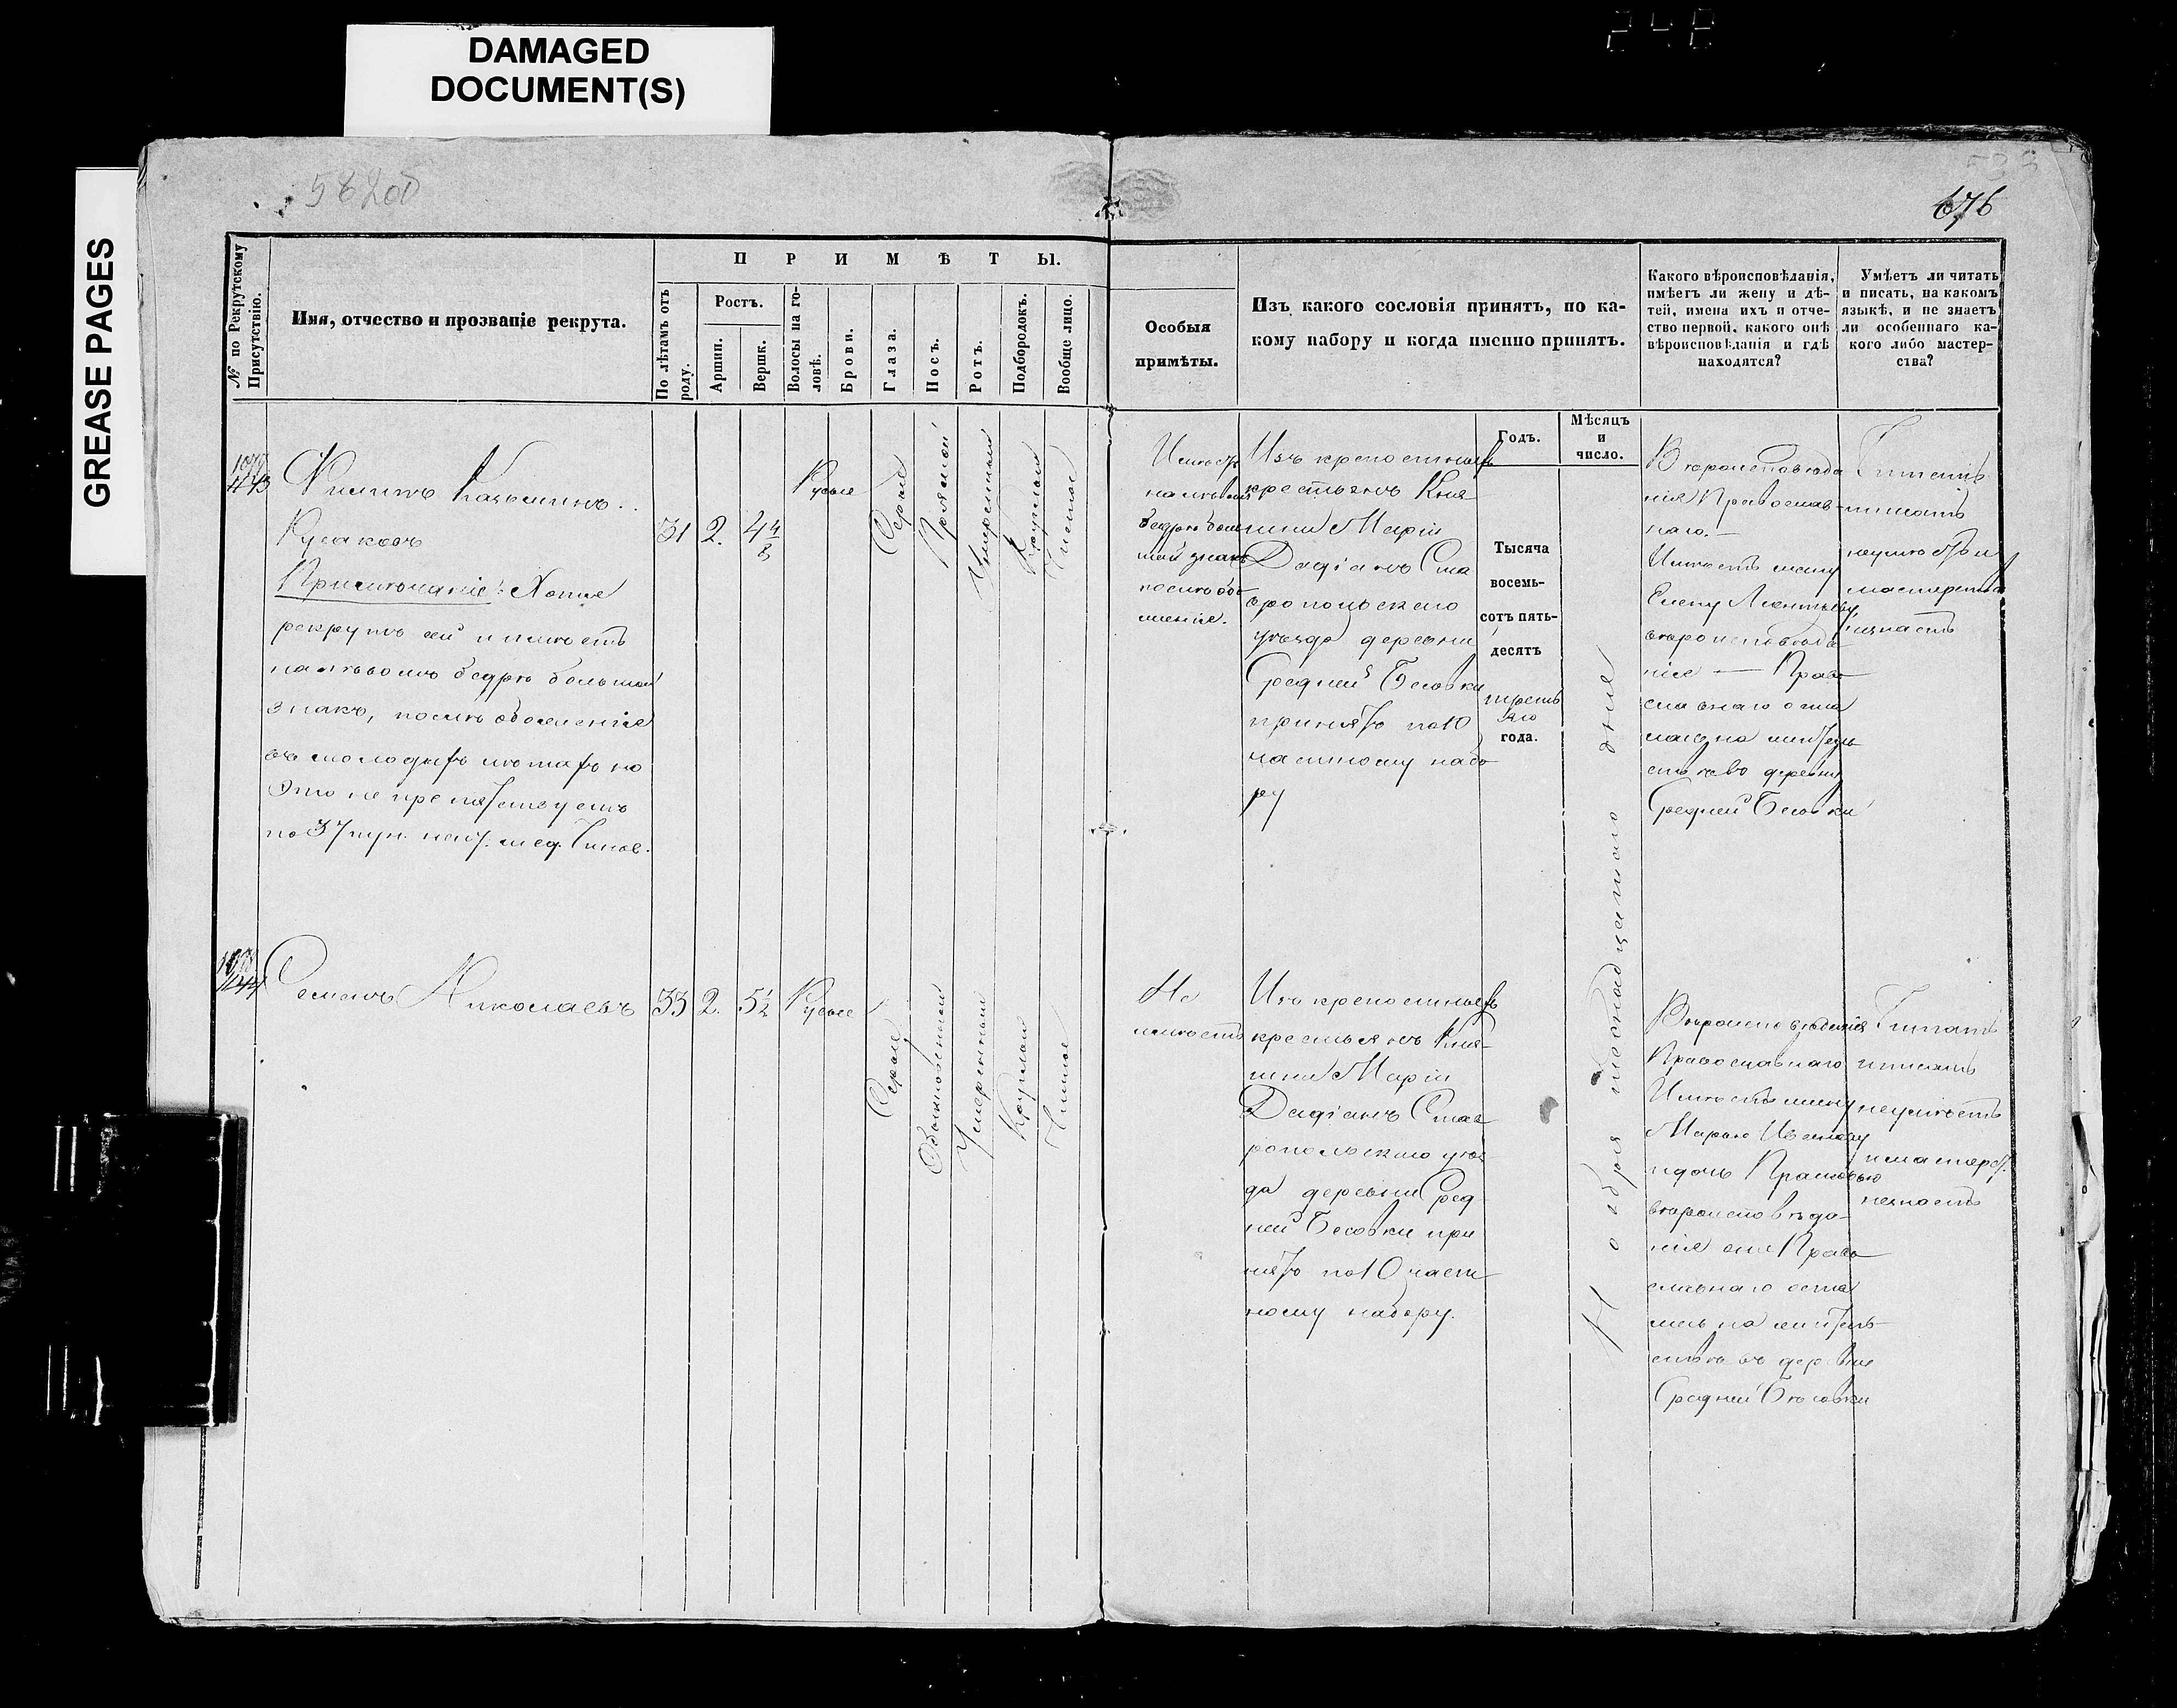 DAMAGED
DOCUMENT(S)
GREASE PAGES
676
№ по Рекрутскому
Присутствію.
Имя, отчество и прозваніе рекрута.
ПРИМѢТЫ.
По лѣтамъ отъ
роду.
Ростъ.
Аршин.
Вершк.
Волосы на го-
ловѣ.
Брови.
Глаза.
Носъ.
Ротъ.
Подбородокъ.
Вообще лицо.
Особыя
примѣты.
Изъ какого сословія принятъ, по ка-
кому набору и когда именно принятъ.
Какого вѣроисповѣданія,
имѣетъ ли жену и дѣ-
тей, имена ихъ и отче-
ство первой, какого онѣ
вѣроисповѣданія и гдѣ
находятся?
Умѣетъ ли читать
и писать, на какомъ
языкѣ, и не знаетъ
ли особеннаго ка-
кого либо мастер-
ства?
Годъ.
Мѣсяцъ
и
число.
Козьминъ
Русаковъ
Примѣчаніе: Хотя
рекрутъ сей и имѣетъ
на лѣвомъ бедрѣ большой
знакъ, послѣ обозженія
въ молодыхъ лѣтахъ но
Это не препятствуетъ
31
2.
4 4/8
Русые
Сѣрые
Прямой
Умѣренный
Круглый
Чистое
Имѣетъ
на лѣвомъ
бедрѣ боль
шой знакъ
послѣ обо
женія.
Изъ крепостныхъ
крестьянъ Кня
гини Маріи
Дадіанъ Ста
вропольскаго
уѣзда деревни
Средней Бесовки
принятъ по 10
частному набо
ру
Тысяча
восемь-
сотъ пять-
десятъ
третьяго
года.
Ноября шестнадцатаго дня
Вѣроисповѣда
нія Православ-
наго. —
Имѣетъ жену
Елену Леонтьеву,
вѣроисповѣда
нія — Право
славнаго оста
лась на житель
ствѣ въ деревни
Средней Бесовки
Читать
писать
неумѣетъ и
мастерства
незнаетъ
Семенъ Николаевъ
33
2.
5 1/2
Русые
Сѣрые
Обыкновенный
Умѣренный
Круглый
Чистое
Не
имѣетъ
Изъ крепостныхъ
крестьянъ Кня-
гини Маріи
Дадіанъ Став
ропольскаго уѣз
да деревни Сред
ней Бесовки при
нятъ по 10 част
ному набору.
Вѣроисповѣданія
Православнаго
Имѣетъ жену
Марью Иванову
и дочь Прасковью
вѣроисповѣда-
нія они Право
славнаго оста
лись на житель
ствѣ въ деревни
Средней Бѣсовки
Читать
писать
неумѣетъ
и мастерст.
незнаетъ